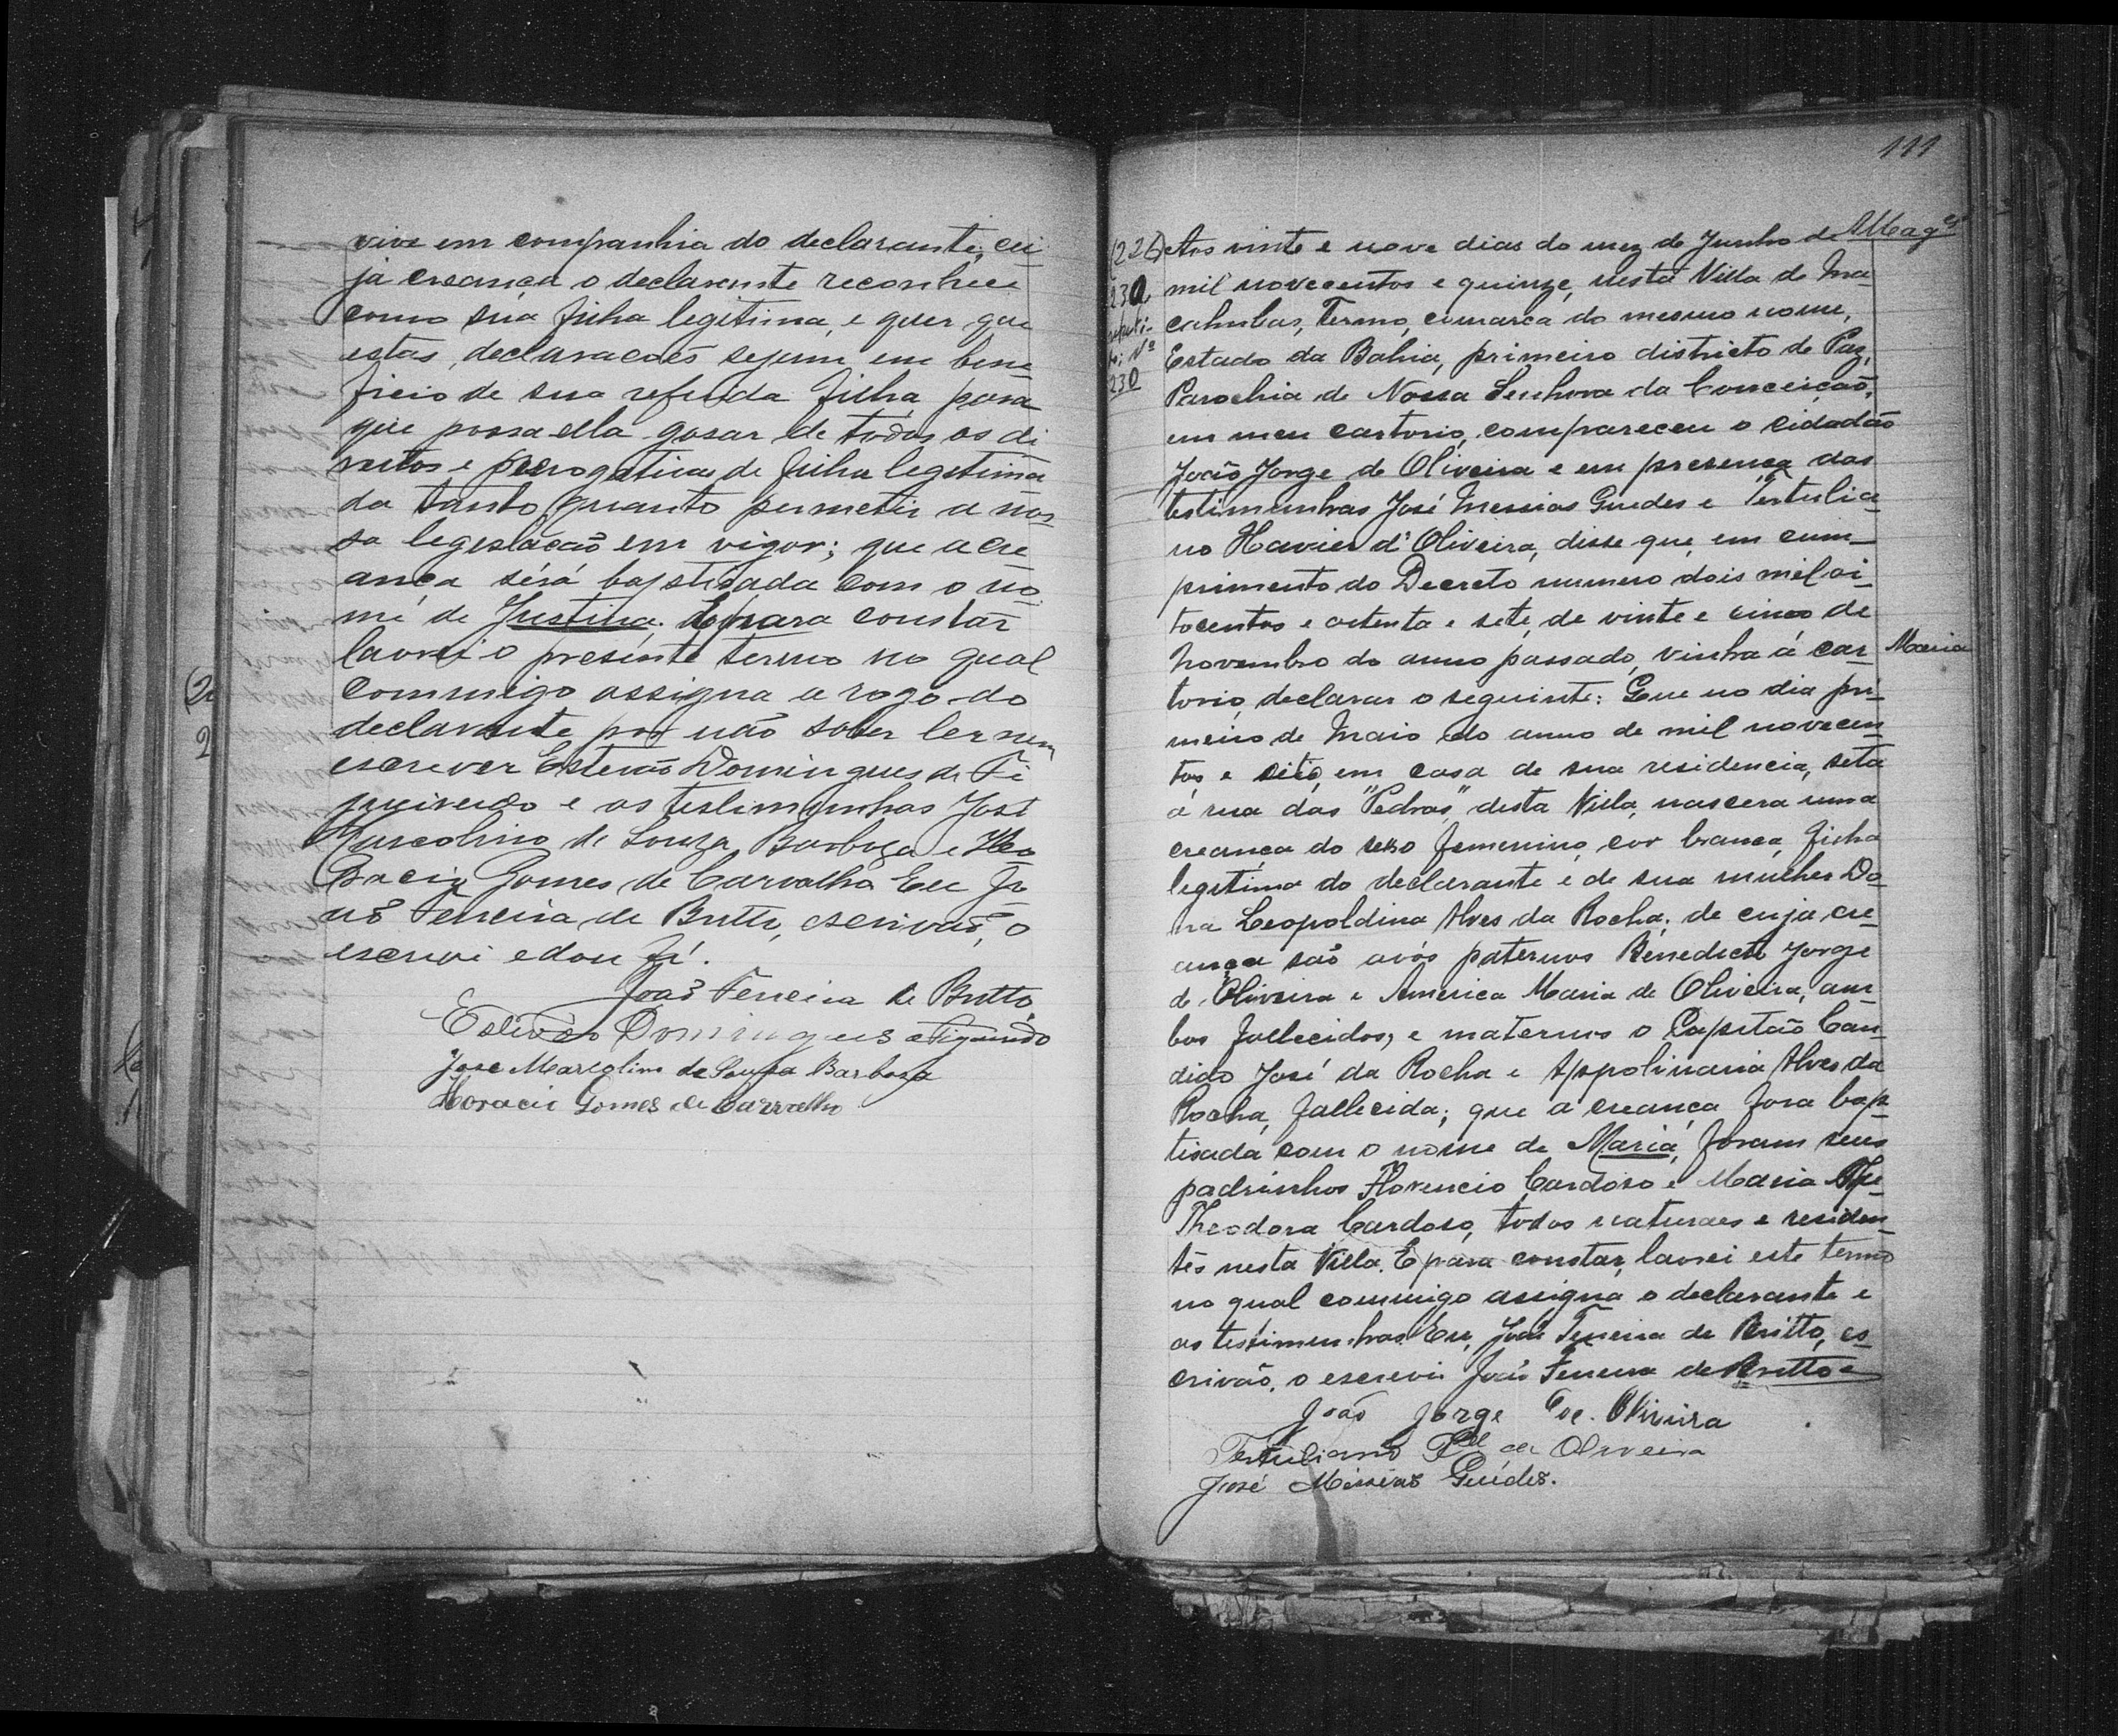 vive em companhia do declarante, cu
ja creança o declarante reconhece
como sua filha legitima, e quer que
estas declaracoẽs sejam em bene
ficio de sua referida filha para
que possa ella gosar de todos os di
reitos e prerogativas de filha legitima
da tanto quanto permetir a nos
sa legislacaõ em vigor; que a cre
ança será baptisada com o no
me de Justina. E para constar
lavrei o presente termo no qual
commigo assigna a rogo do
declarante por não saber ler nem
escrever Estevaõ Domingues de Fi
gueiredo e as testimunhas José
Marcolino de Souza Barboza e Ho
racio Gomes de Carvalho Eu Jo
aõ Ferreira de Britto, escrivaõ, o
escrevi e dou fé.
Joaõ Ferreira de Britto
Estevão Domingues
Jose Marcolino de Souza Barboza
Horacio Gomes de Carvalho
111
230
Nº
230
Aos vinte e nove dias do mez de Junho de
mil novecentos e quinze, nesta Villa de Ma
cahubas, Termo, comarca do mesmo nome,
Estado da Bahia, primeiro districto de Paz,
Parochia de Nossa Senhora da Conceição,
em meu cartorio, compareceu o cidadão
João Jorge de Oliveira e em presença das
testimunhas José Messias Guedes e Tertulia
no Xavier d'Oliveira, disse que, em cum-
primento do Decreto numero dois mil oi-
tocentos e oitenta e sete, de vinte e cinco de
Novembro do anno passado, vinha á car-
Maria
torio, declarar o seguinte: Que no dia pri-
meiro de Maio do anno de mil novecen
tos e oito, em casa de sua residencia, seta
á rua das "Pedras", desta Villa, nascera uma
creança do sexo femenino, cor branca, filha
legitima do declarante e de sua mulher Do
na Leopoldina Alves da Rocha; de cuja cre-
ança são avós paternos Benedicto Jorge
de Oliveira e America Maria de Oliveira, am-
bos fallecidos, e maternos o Capitão Can-
dido José da Rocha e Appolinaria Alves da
Rocha, fallecida; que a creança fora bap-
tisada com o nome de Maria, foram seus
padrinhos Florencio Cardoso e Maria
Theodora Cardoso, todos naturaes e residen-
tes nesta Villa. E para constar, lavrei este termo
no qual commigo assigna o declarante e
as testimunhas. Eu, João Ferreira de Britto, es-
crivão, o escrevi João Ferreira de Britto
João Jorge de Oliveira
Tertuliano de Oliveira
José Messias Guédes.